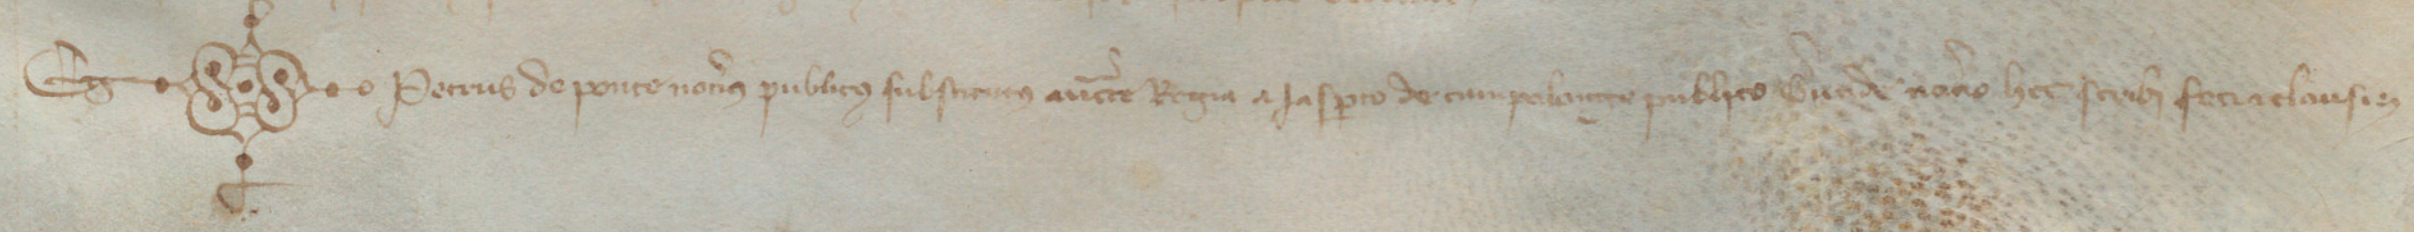 Eg o Petrus de ponte notarius publicus substitutus auctte Regia a Jasperto de campolongo publico Gerunde notario hec scribi feci et clausi